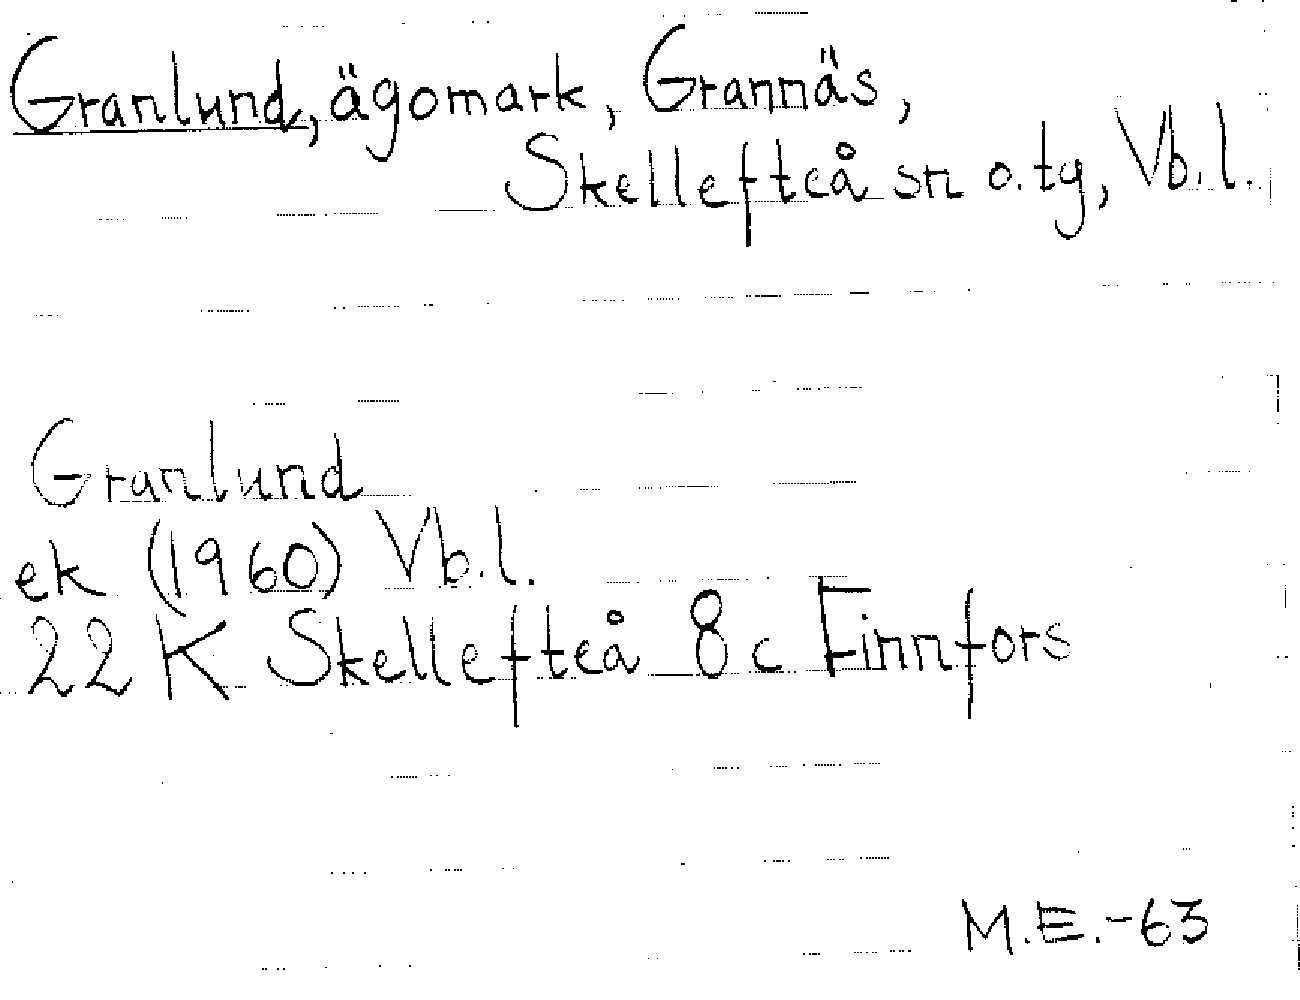 Granlund, ägomark, Grannäs,
Skellefteå sn o. tg, Vb. l.
Granlund
ek (1960) Vb. l.
22 K Skellefteå 8 c Finnfors
M.E.-63